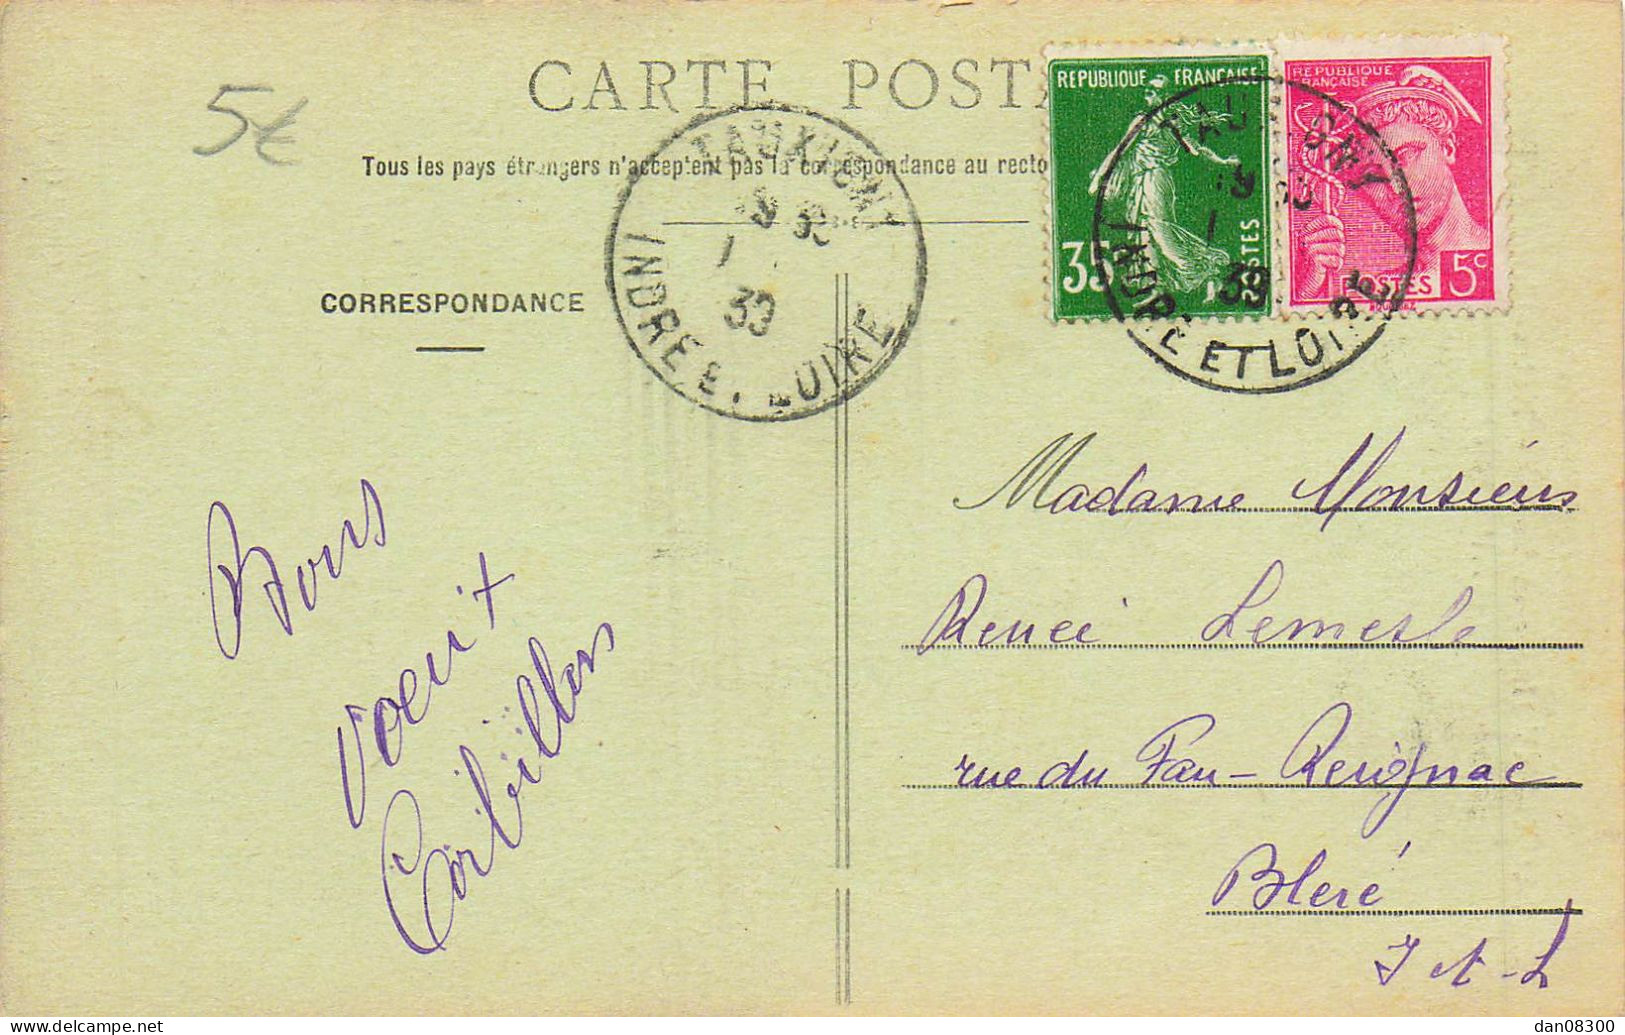 CARTE POSTA
5€
Tous les pays étrangers n'acceptent pas la correspondance au recto
REPUBLIQUE FRANÇAISE
35 POSTES
REPUBLIQUE
FRANÇAISE
POSTES 5c
TAUXIGNY
1
39
INDRE ET LOIRE
TAUXIGNY
1
39
INDRE ET LOIRE
CORRESPONDANCE
Bons
voeux
Madame Monsieurs
Lemesle
rue du
Bleré
I et L
delcampe.net
dan08300